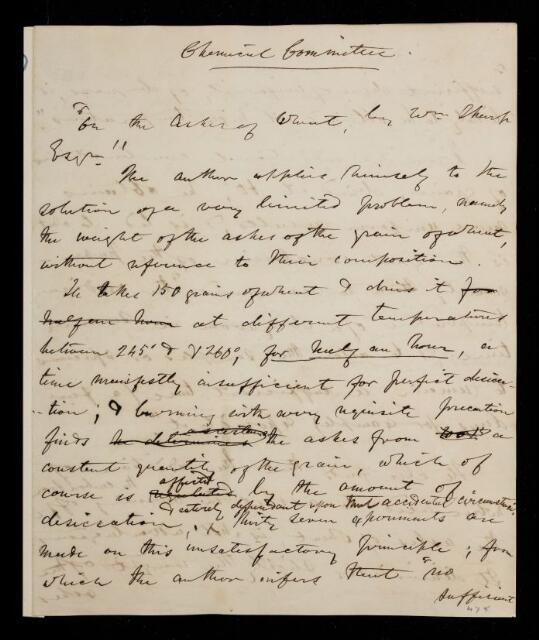 Chemical Committee.
"On the Ashes of Wheat, by Wm Sharp
Esqre"
The author applies himself to the
solution of a very limited problem, namely
the weight of the ashes of the grain of wheat,
without reference to their composition.
He takes 150 grains of wheat & dries it for
half an hour at different temperatures
between 245° & 260°, for half an hour, a
time manifestly insufficient for perfect desicca-
-tion; & burning with every requisite precaution
ascertains
finds he determines the ashes from a
constant quantity of the grain, which of
affected
course is regulated by the amount of
& entirely dependant upon that accidental circumstance
desiccation. Thirty seven experiments are
made on this unsatisfactory principle; from
which the author infers that "no
sufficient